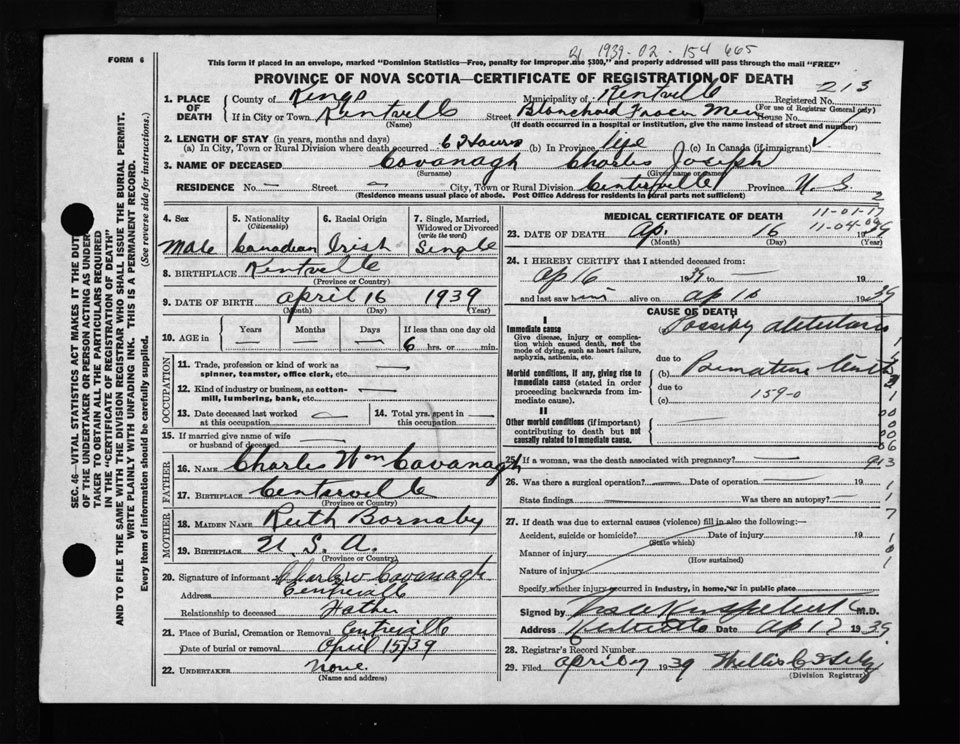 21 1939-02-154 665
FORM 6
This form if placed in an envelope, marked "Dominion Statistics—Free, penalty for improper use $300," and properly addressed will pass through the mail "FREE"
PROVINCE OF NOVA SCOTIA—CERTIFICATE OF REGISTRATION OF DEATH
213
1. PLACE OF DEATH
County of Kings Municipality of Kentville Registered No.
(For use of Registrar General only)
If in City or Town Kentville Street Blanchard Fraser Mem House No.
(Name) (If death occurred in a hospital or institution, give the name instead of street and number)
2. LENGTH OF STAY (in years, months and days)
(a) In City, Town or Rural Division where death occurred 6 Hours (b) In Province life (c) In Canada (if immigrant)
3. NAME OF DECEASED Cavanagh Charles Joseph
(Surname) (Given name or names)
RESIDENCE No. — Street — City, Town or Rural Division Centreville Province N. S.
(Residence means usual place of abode. Post Office Address for residents in rural parts not sufficient)
2
4. Sex Male
5. Nationality (Citizenship) Canadian
6. Racial Origin Irish
7. Single, Married, Widowed or Divorced (write the word) Single
8. BIRTHPLACE Kentville
(Province or Country)
9. DATE OF BIRTH April 16 1939
(Month) (Day) (Year)
10. AGE in Years Months Days If less than one day old
— — — 6 hrs. or min.
OCCUPATION
11. Trade, profession or kind of work as spinner, teamster, office clerk, etc. —
12. Kind of industry or business, as cotton-mill, lumbering, bank, etc. —
13. Date deceased last worked at this occupation —
14. Total yrs. spent in this occupation —
15. If married give name of wife or husband of deceased —
FATHER
16. NAME Charles Wm Cavanagh
17. BIRTHPLACE Centreville
(Province or Country)
MOTHER
18. MAIDEN NAME Ruth Bornaby
19. BIRTHPLACE U. S. A.
(Province or Country)
20. Signature of informant Charles W Cavanagh
Address Centreville
Relationship to deceased Father
21. Place of Burial, Cremation or Removal Centreville
Date of burial or removal April 15/39
22. UNDERTAKER None.
(Name and address)
MEDICAL CERTIFICATE OF DEATH
11-01-17
11-04-09
23. DATE OF DEATH Ap. 16 1939
(Month) (Day) (Year)
24. I HEREBY CERTIFY that I attended deceased from:
Ap 16 1939 — 19
and last saw him alive on Ap 16 1939
CAUSE OF DEATH
I
Immediate cause
Give disease, injury or complication which caused death, not the mode of dying, such as heart failure, asphyxia, asthenia, etc.
Possibly Atelectasis
due to
Morbid conditions, if any, giving rise to immediate cause (stated in order proceeding backwards from immediate cause).
(b) Premature birth
due to
(c) 159-0
II
Other morbid conditions (if important) contributing to death but not causally related to immediate cause.
25. If a woman, was the death associated with pregnancy? —
913
26. Was there a surgical operation? — Date of operation — 19
State findings Was there an autopsy? —
27. If death was due to external causes (violence) fill in also the following:—
Accident, suicide or homicide? Date of injury 19
(State which)
Manner of injury
(How sustained)
Nature of injury
Specify whether injury occurred in industry, in home, or in public place
Signed by M.D.
Address Date Ap 17 1939
28. Registrar's Record Number
29. Filed April 17 1939 Phyllis
(Division Registrar)
SEC. 46—VITAL STATISTICS ACT MAKES IT THE DUTY
OF THE UNDERTAKER OR PERSON ACTING AS UNDER-
TAKER TO OBTAIN ALL THE PARTICULARS REQUIRED
IN THE "CERTIFICATE OF REGISTRATION OF DEATH"
AND TO FILE THE SAME WITH THE DIVISION REGISTRAR WHO SHALL ISSUE THE BURIAL PERMIT.
WRITE PLAINLY WITH UNFADING INK. THIS IS A PERMANENT RECORD.
Every item of information should be carefully supplied. (See reverse side for instructions.)